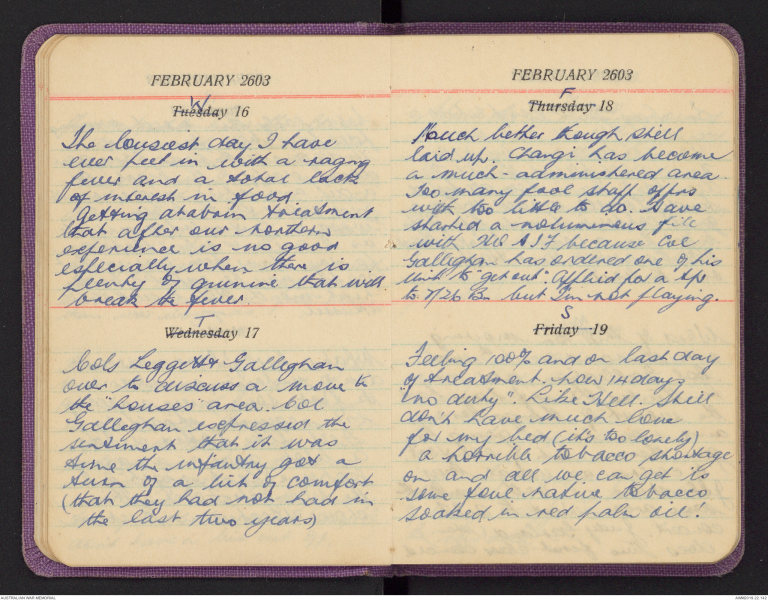 FEBRUARY 2603
W
Tuesday 16
The lousiest day I have
ever put in with a raging
fever and a total lack
of interest in food.
Getting atabrin treatment
that after our northern
experience is no good
especially when there is
plenty of quinine that will
break the fever
T
Wednesday 17
Cols Leggett & Galleghan
over to discuss a move to
the "houses" area. Col
Galleghan expressed the
sentiment that it was
time the infantry got a
turn of a bit of comfort
(that they had not had in
the last two years)
FEBRUARY 2603
F
Thursday 18
Much better though still
laid up. Changi has become
a much-administered area.
Too many fool staff offrs
with too little to do. Have
started a voluminous file
with HQ A.I.F. because Col
Galleghan has ordered one of his
Unit to "get out". Applied for a tfr
to 2/26 Bn but I'm not playing.
S
Friday 19
Feeling 100% and on last day
of treatment. Now 14 days
"no duty". Like Hell. Still
don't have much love
for my bed (it's too lonely)
a horrible tobacco shortage
on and all we can get is
some foul native tobacco
soaked in red palm oil!
AUSTRALIAN WAR MEMORIAL